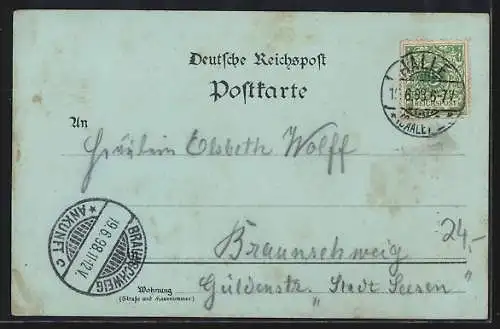 Deutsche Reichspost
Postkarte
HALLE
19.6.98.6-7V
(SAALE)
An
Fräulein Elsbeth Wolff
BRAUNSCHWEIG
19.6.98.11-12V.
* ANKUNFT C
24,-
Braunschweig
Wohnung
(Straße und Hausnummer)
Güldenstr. „Stadt Seesen“